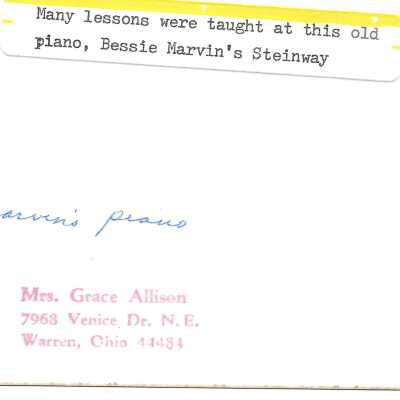 Many lessons were taught at this old
piano, Bessie Marvin's Steinway
arvin's piano
Mrs. Grace Allison
7968 Venice Dr. N.E.
Warren, Ohio 44484